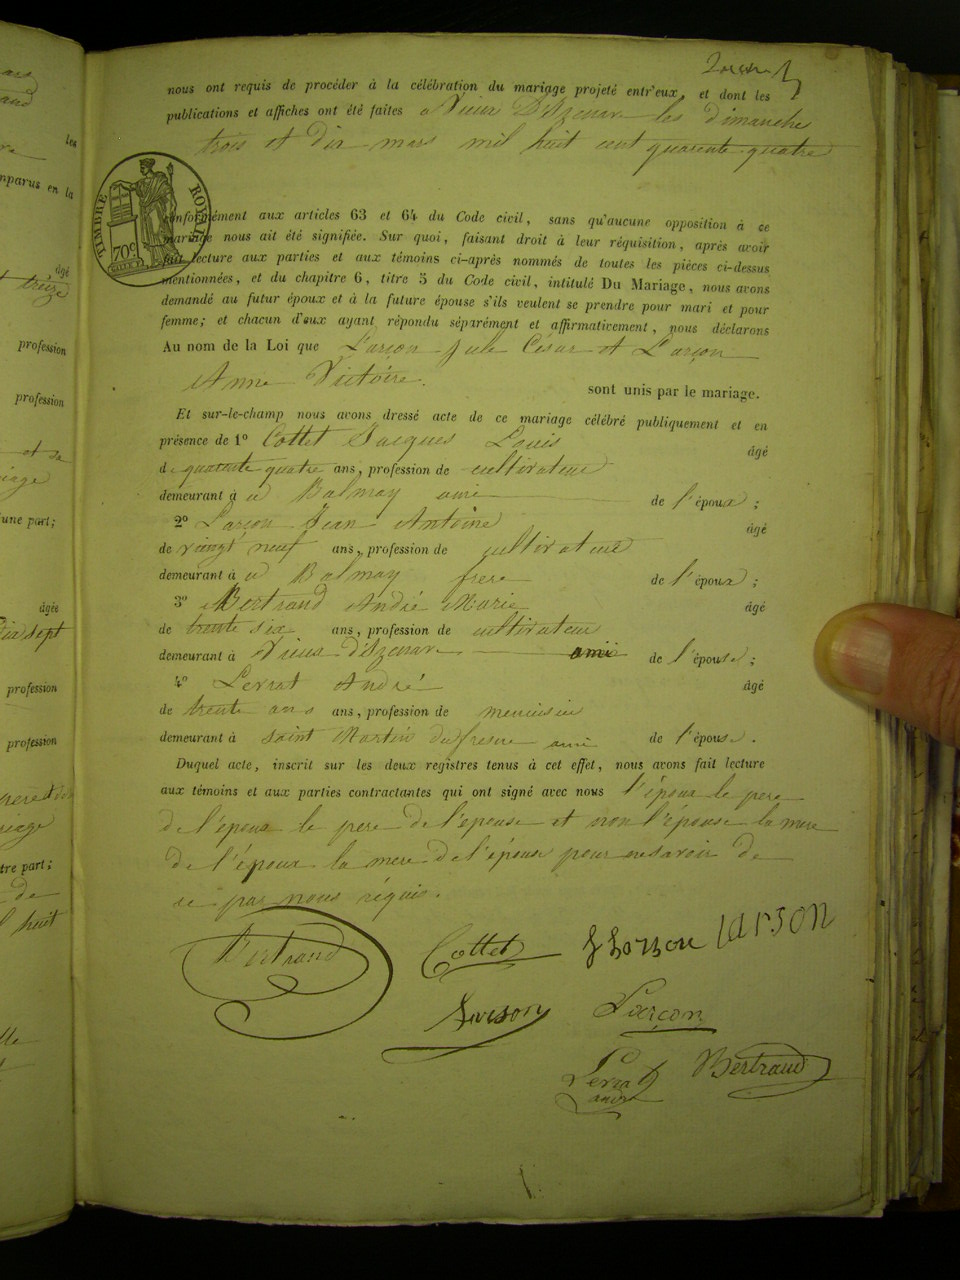 nous ont requis de procéder à la célébration du mariage projeté entr'eux, et dont les
publications et affiches ont été faites a Vieux D'Izenave les dimanches
trois et dix mars mil huit cent quarente quatre
TIMBRE ROYAL
70c
conformément aux articles 63 et 64 du Code civil, sans qu'aucune opposition à ce
mariage nous ait été signifiée. Sur quoi, faisant droit à leur réquisition, après avoir
fait lecture aux parties et aux témoins ci-après nommés de toutes les pièces ci-dessus
mentionnées, et du chapitre 6, titre 5 du Code civil, intitulé Du Mariage, nous avons
demandé au futur époux et à la future épouse s'ils veulent se prendre pour mari et pour
femme; et chacun d'eux ayant répondu séparément et affirmativement, nous déclarons
Au nom de la Loi que Larçon Jule César et Larçon
Anne Victoire. sont unis par le mariage.
Et sur-le-champ nous avons dressé acte de ce mariage célébré publiquement et en
présence de 1° Cottet Jacques Louis âgé
de quarente quatre ans, profession de cultivateur
demeurant à a Balmay ami de l'époux;
2° Larçon Jean Antoine âgé
de veingt neuf ans, profession de cultivateur
demeurant à a Balmay frere de l'époux;
3° Bertrand André Marie âgé
de trente six ans, profession de cultivateur
demeurant à Vieux d'Izenave ami de l'épouse;
4° Levrat André âgé
de trente ans ans, profession de menuisier
demeurant à saint Martin du fresne ami de l'épouse.
Duquel acte, inscrit sur les deux registres tenus à cet effet, nous avons fait lecture
aux témoins et aux parties contractantes qui ont signé avec nous l'époux le pere
de l'époux le pere de l'epouse et non l'épouse la mere
de l'époux la mere de l'épouse pour ne savoir de
ce par nous réquis.
Bertrand Cottet Larson
Larson Larçon
Levrat Bertrand
andré
les
comparus en la
âgé
treize
profession
profession
et de
une part;
âgée
dix sept
profession
profession
autre part;
de
huit